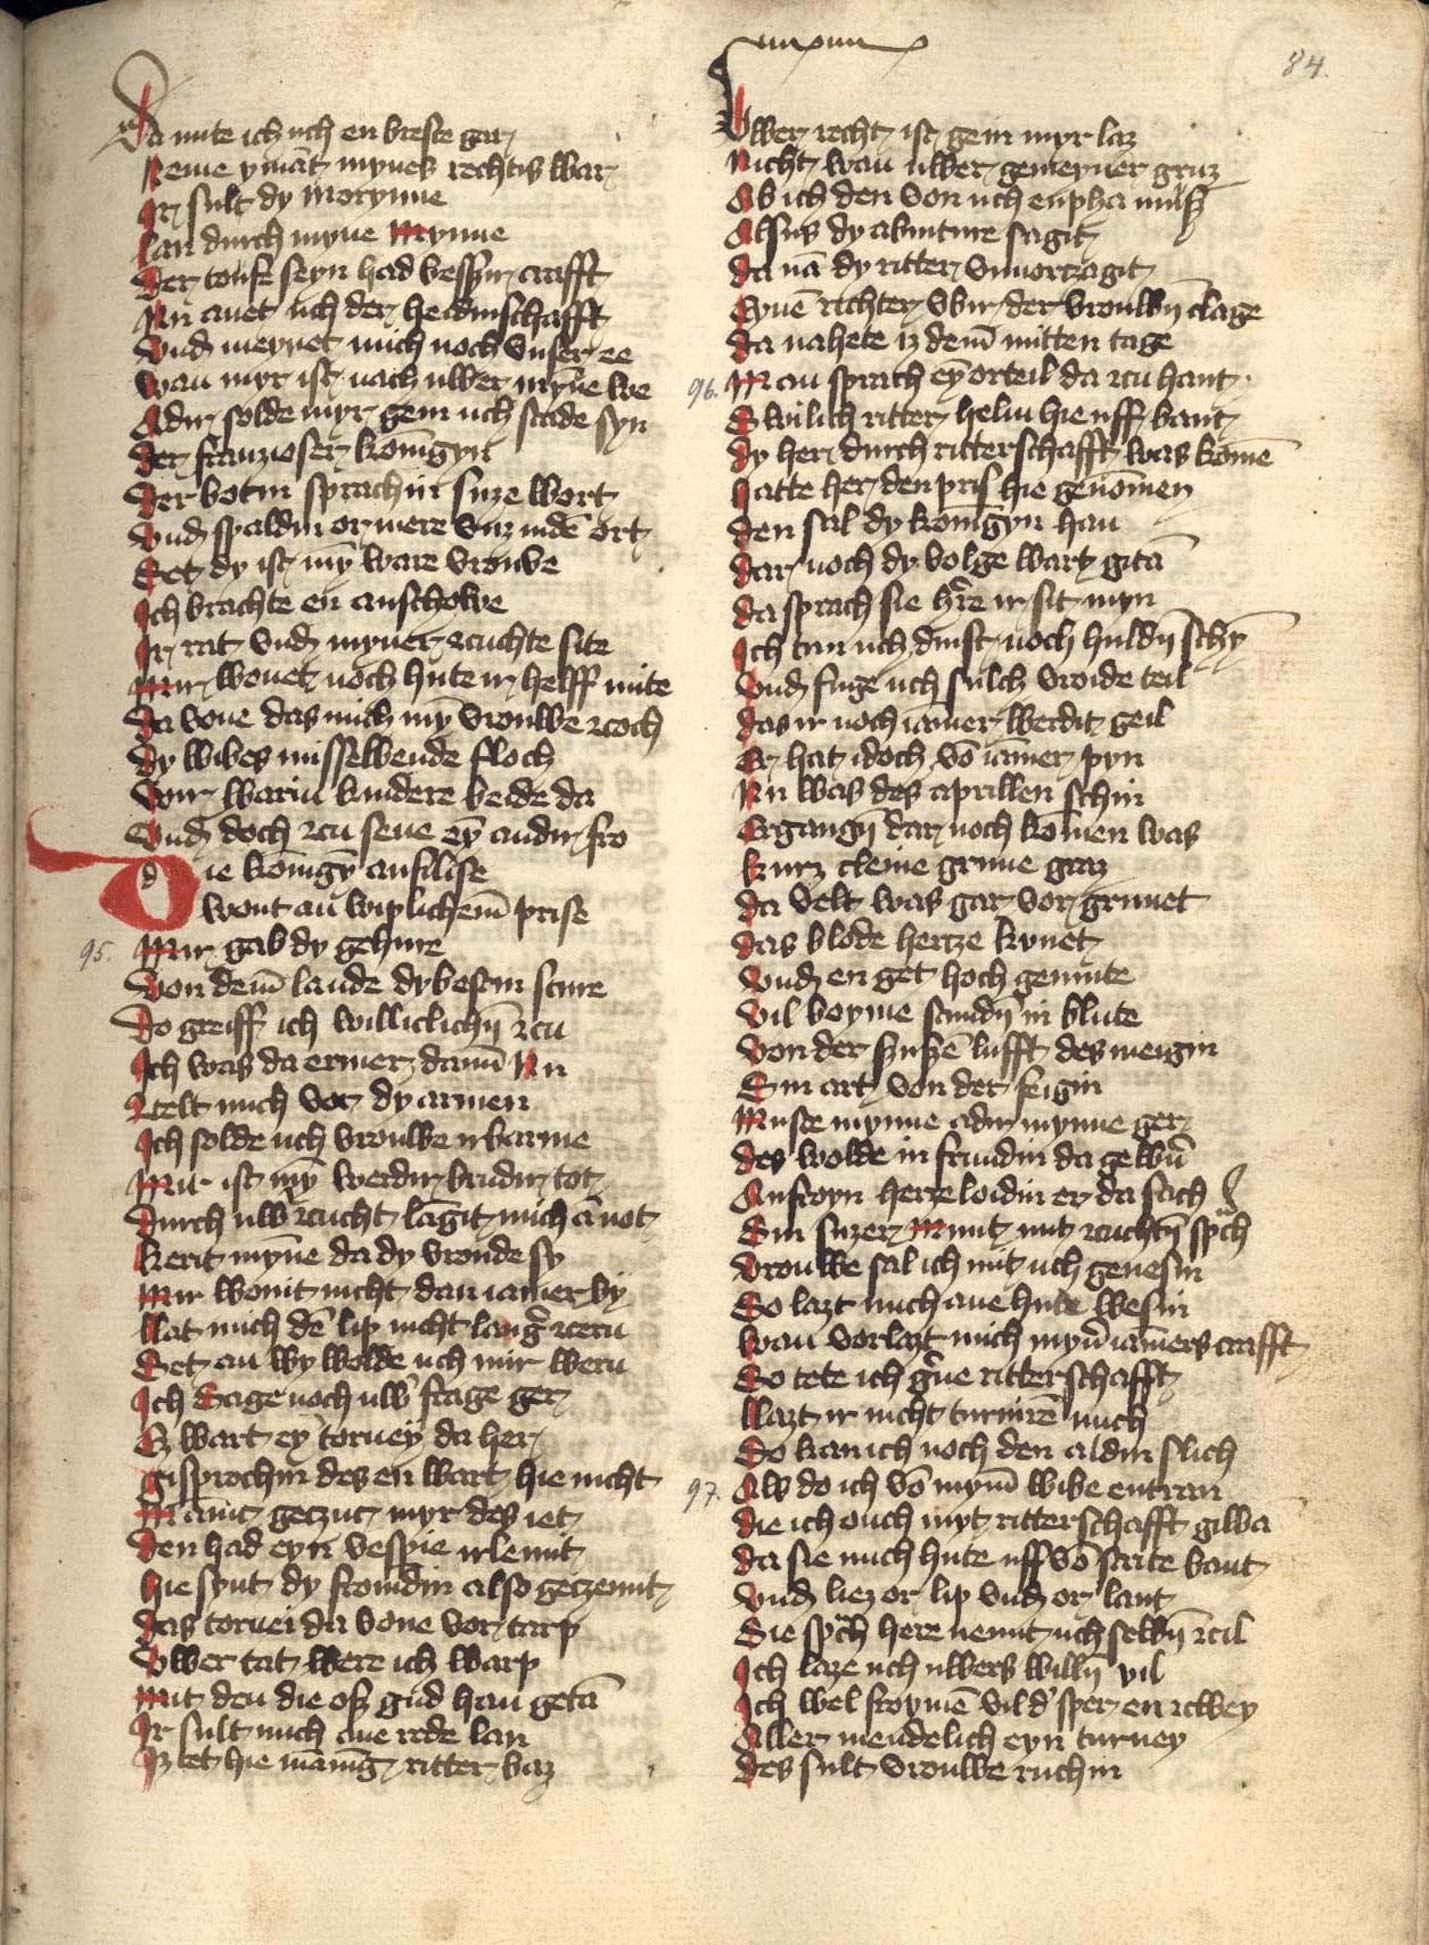 84.
Da mite ich uch en breste gar
Neme ymāt mynes rechtis war
Ir sult dy morynne
Lan durch myne Mynne
Der toufe seyn had bessir crafft
Nu anet uch der heidinschafft
Vnd meynet mich noch vnser ee
Wan myr ist nach uwer mȳne we
Adir solde myr gein uch scade syn
Der franzoiser konīgyn
Der botin sprachin suze wort
Vnd spaldin or mere vnz indē ort
Set dy ist mȳ ware vrouwe
Ich brachte en anschowe
Ir rat vnd myner zcuchte site
Mir wonet noch hute ir helff mite
Da vone das mich mȳ vrouwe zcoch
Dy wibes missewende floch
Wir warin kindere beide da
Vnd doch zcu sene eȳ andir fro
Die konīgȳ anfilise
wont an wiplichem̄ prise
95. Mir gab dy gehure
Von dem̄ lande dy bestin sture
Do greiff ich williclichȳ zcu
Ich was da ermer dann̄ Nu
Zcelt mich vor dy armen
Ich solde uch vrouwe irbarme
Mir ist mȳ werdir brudir tot
Durch uw' zcucht lāgit mich ā not
Kerit mȳne da dy vroude sy
Mir wonit nicht dan iamer by
Llat mich dē lip nicht lang' zceru
Set an wy wolde uch mir weru
Ich Sage noch uw' frage ger
Ez wart eȳ torney da her
gisprochin des en wart hie nicht
Manic geczuc myr des iet
Den had eyn vespie irlemit
hie synt dy froidin also geczemit
Das tornei da vone vor tarp
Vwer tat were ich warp
Mit den die osz gud han getā
Ir sult mich ane rede lan
Iz tet hie mānig ritter baz
Vwer recht ist gein myr laz
Nicht wan uwer gemeyner gruz
Ab ich den von uch enpha musz
Alsus dy abinture sagit
Da nā dy ritter vnuortzagit
Eynē richter vbir der vrouwȳ clage
Da nahete iz dem̄ mitten tage
96. Man sprach eȳ orteil da zcu hant
Swilich ritter helm hie uff bant
Dy her durch ritterschafft was komē
Hatte her den pris hie genōmen
Den sal dy konīgyn han
Dar noch dy volge wart gitā
Da sprach sie h're ir sit myn
Ich tun uch dinst noch huldȳ schȳ
Vnd fuge uch sulch vroide teil
Das ir noch iamer werdit geil
Er hat idoch vō iamer pyn
Nu was des aprillen schin
Ergangȳ dar noch komen was
kurz cleine grune graz
Da velt was gar vor grunet
Das blode hertze kunet
Vnd en get hoch gemute
Vil boyme stundȳ in blute
Von der szuszē lufft des meigin
Sin art von der feigin
Muste mynne adir mynne ger
Des wolde in frundin da gew'n
Anfroyn herzeloidin er da sach
Sin suzer Munt mit zcuchtȳ sp'ch
Vrouwe sal ich mit uch genesin
So lazt mich ane hute wesin
Wan vorlazt mich myn' iāmers crafft
So tete ich g'ne ritterschafft
Llazt ir nicht turnirē mich
So kan ich noch den aldin slich
97. Alz do ich vō mym̄ wibe entran
Die ich ouch myt ritterschafft giwā
Da sie mich hute uff vō strite bant
Vnd liez or lip vnd or lant
Sie sp'ch here nemt uch selbȳ zcil
Ich laze uch uwers willȳ vil
Ich wel froymē vil d' sper en zcwey
Aller mendelich eyn turney
Des sult vrouwe ruchin